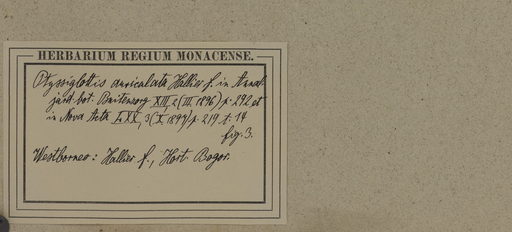 HERBARIUM REGIUM MONACENSE.
Ptyssiglottis auriculata Hallier f. in Annal.
jard. bot. Buitenzorg XIII, 2 (III. 1896) p. 292 et
in Nova Acta LXX, 3 (X. 1897) p. 219 t. 14
fig. 3.
Westborneo: Hallier f., Hort. Bogor.